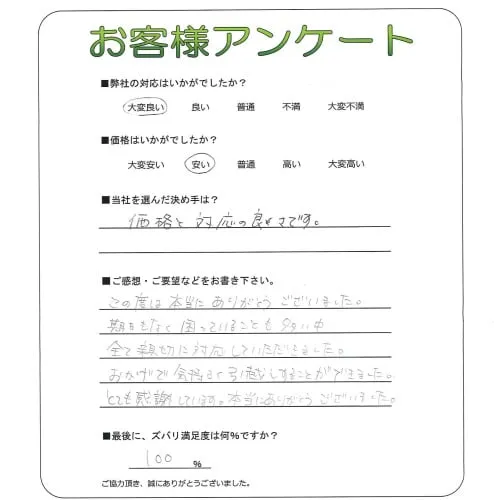 お客様アンケート
■弊社の対応はいかがでしたか?
大変良い 良い 普通 不満 大変不満
■価格はいかがでしたか?
大変安い 安い 普通 高い 大変高い
■当社を選んだ決め手は?
価格と対応の良さです。
■ご感想・ご要望などをお書き下さい。
この度は本当にありがとうございました。
期日もなく困っていることも多い中
全て親切に対応していただきました。
おかげで気持よく引越しすることができました。
とても感謝しています。本当にありがとうございました。
■最後に、ズバリ満足度は何%ですか?
100 %
ご協力頂き、誠にありがとうございました。